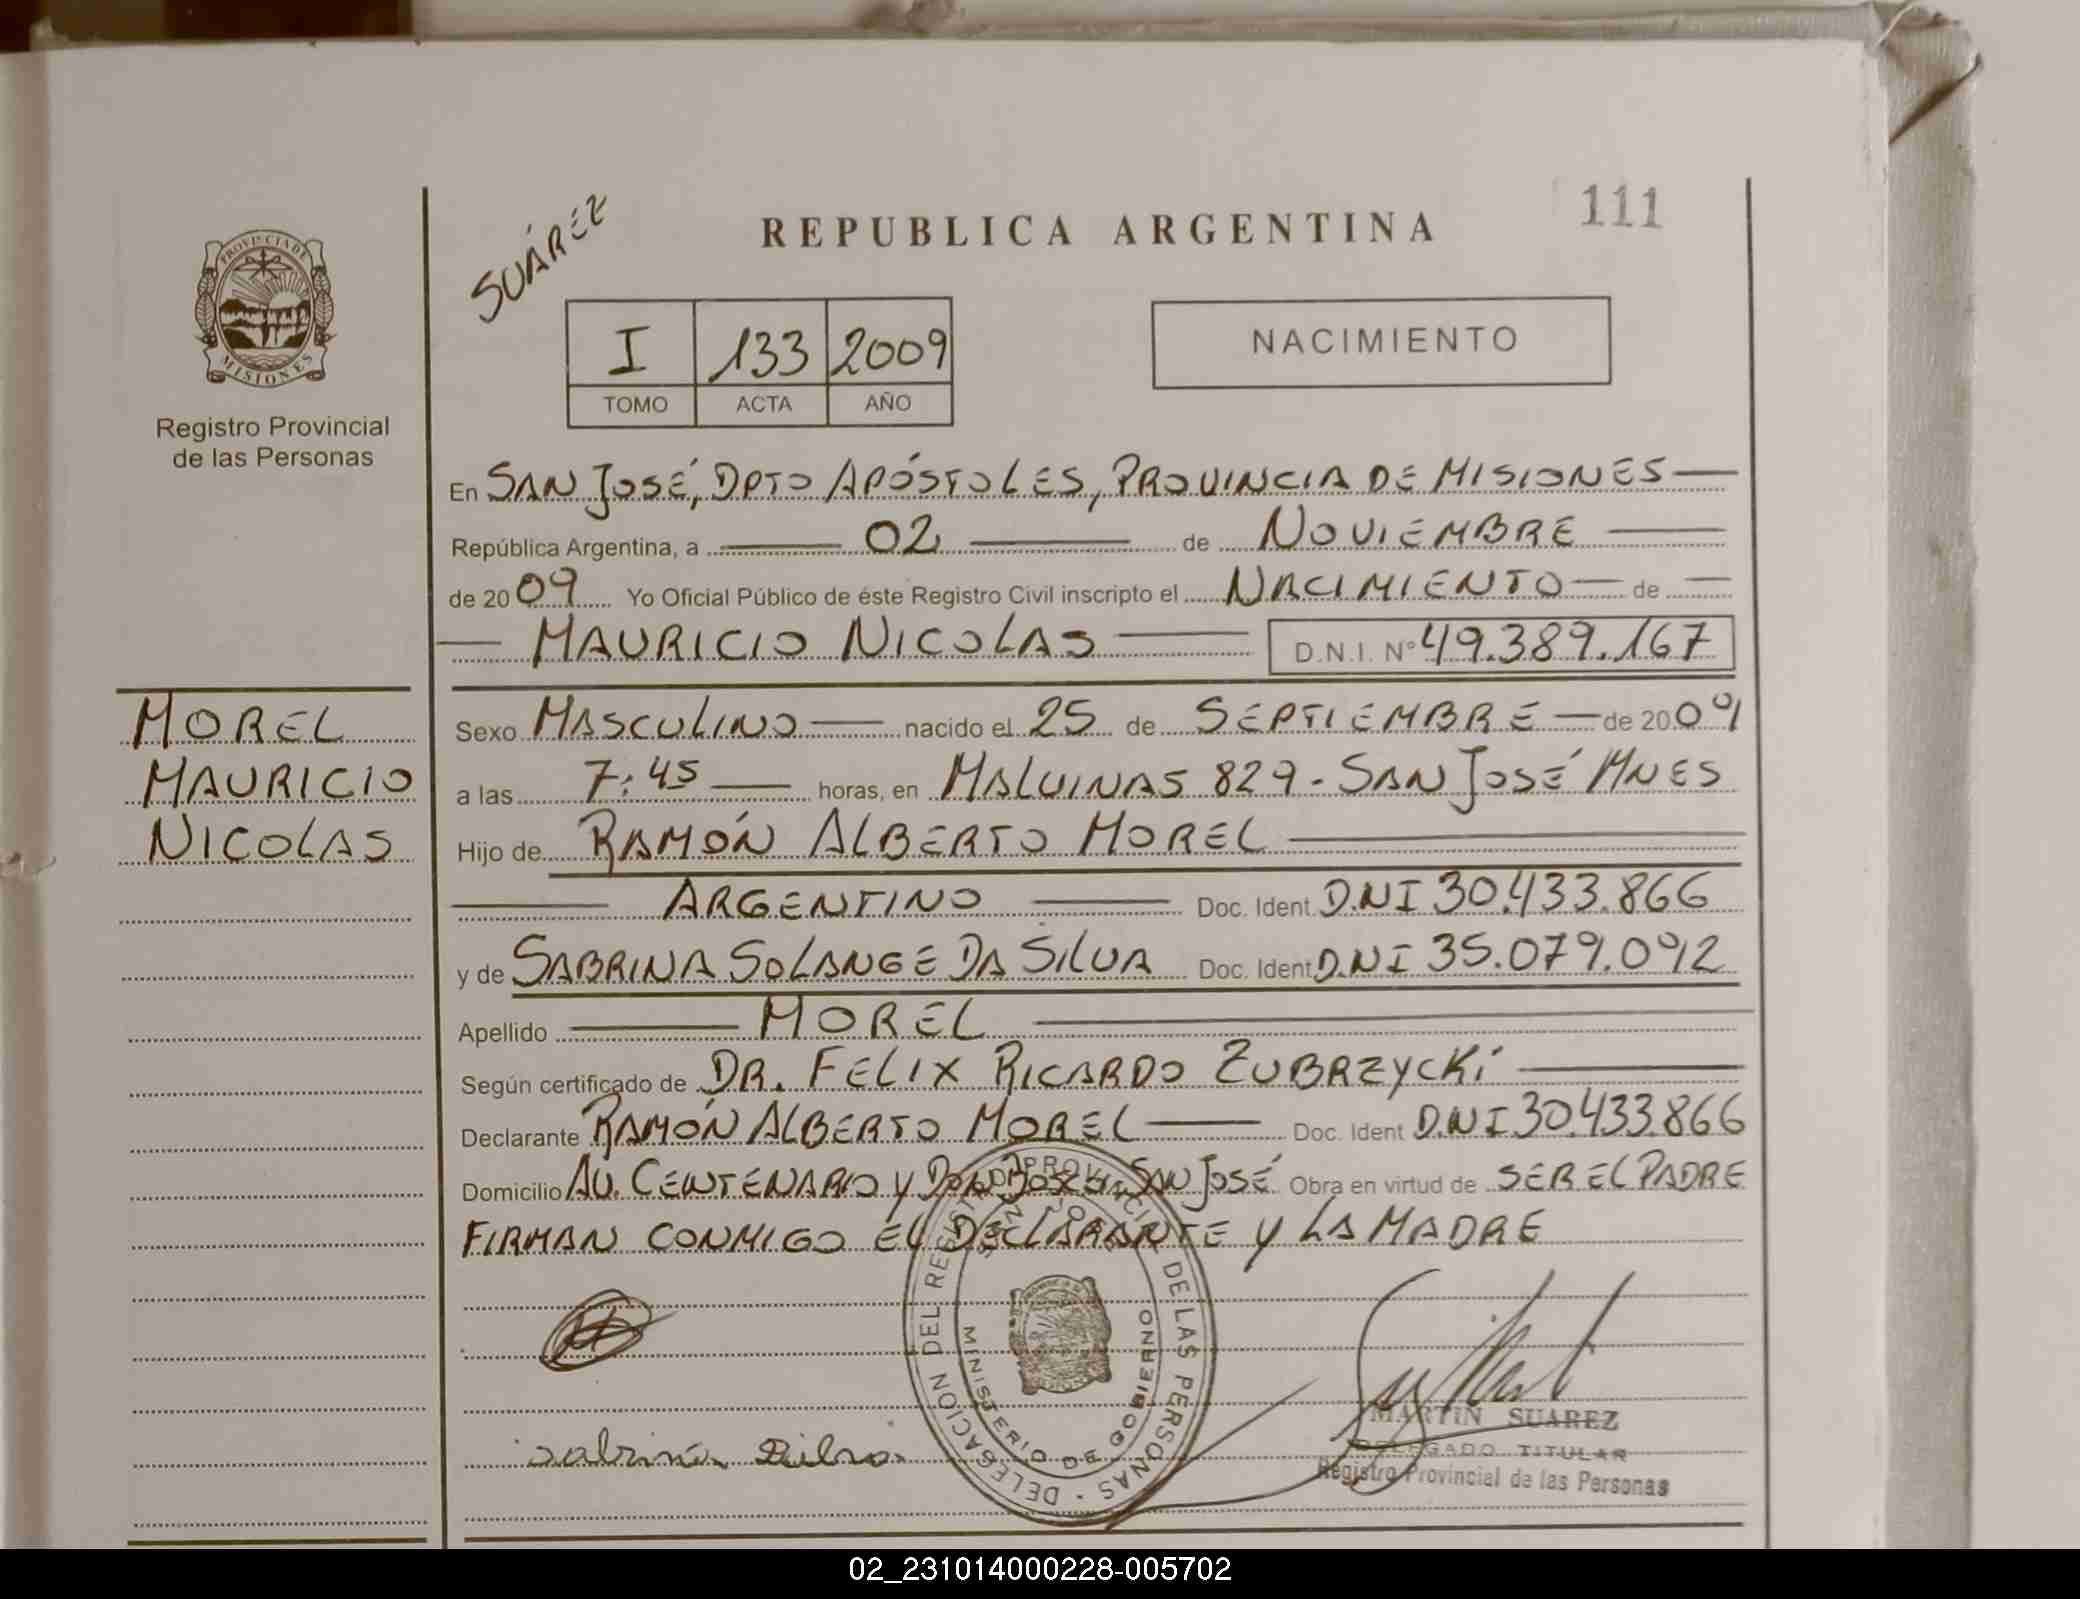 111
SUÁREZ
REPUBLICA ARGENTINA
PROVINCIA DE
MISIONES
Registro Provincial
de las Personas
I 133 2009
TOMO ACTA AÑO
NACIMIENTO
En SAN JOSÉ, DPTO APÓSTOLES, PROVINCIA DE MISIONES
República Argentina, a 02 de NOVIEMBRE
de 2009 Yo Oficial Público de éste Registro Civil inscripto el NACIMIENTO de
MAURICIO NICOLAS D.N.I. Nº 49.389.167
MOREL
MAURICIO
NICOLAS
Sexo MASCULINO nacido el 25 de SEPTIEMBRE de 2009
a las 7:45 horas, en MALVINAS 829 - SAN JOSÉ MNES
Hijo de RAMÓN ALBERTO MOREL
ARGENTINO Doc. Ident. D.NI 30.433.866
y de SABRINA SOLANGE DA SILVA Doc. Ident D.NI 35.079.092
Apellido MOREL
Según certificado de DR. FELIX RICARDO ZUBRZYCKI
Declarante RAMÓN ALBERTO MOREL Doc. Ident D.NI 30.433.866
Domicilio AV. CENTENARIO Y DON BOSCO SAN JOSÉ Obra en virtud de SER EL PADRE
FIRMAN CONMIGO EL DECLARANTE Y LA MADRE
DELEGACION DEL REGISTRO PROVINCIAL DE LAS PERSONAS -
MINISTERIO DE GOBIERNO
Sabrina Silva
MARTIN SUAREZ
DELEGADO TITULAR
Registro Provincial de las Personas
02_231014000228-005702